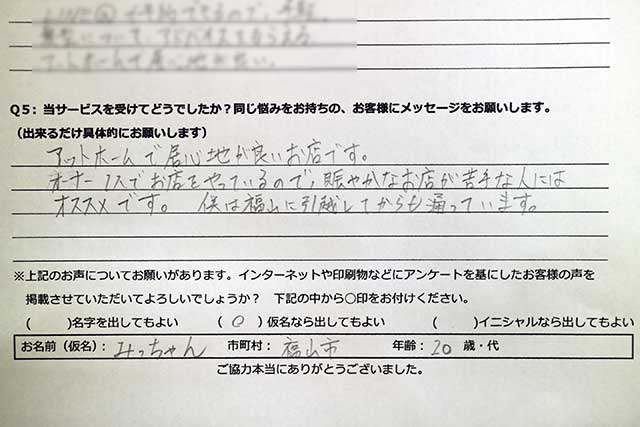 Q5：当サービスを受けてどうでしたか？同じ悩みをお持ちの、お客様にメッセージをお願いします。
（出来るだけ具体的にお願いします）
アットホームで居心地が良いお店です。
オーナー1人でお店をやっているので、賑やかなお店が苦手な人には
オススメです。 僕は福山に引越してからも通っています。
※上記のお声についてお願いがあります。インターネットや印刷物などにアンケートを基にしたお客様の声を
掲載させていただいてよろしいでしょうか？ 下記の中から〇印をお付けください。
（ ）名字を出してもよい （ 〇 ）仮名なら出してもよい （ ）イニシャルなら出してもよい
お名前（仮名）： みっちゃん 市町村： 福山市 年齢： 20 歳・代
ご協力本当にありがとうございました。